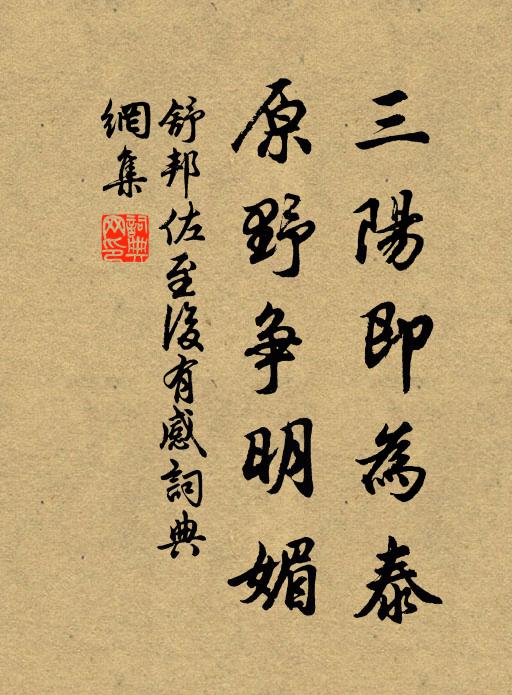 三陽即為泰
原野争明媚
舒邦佐至後有感詞典
網集
詞典網印